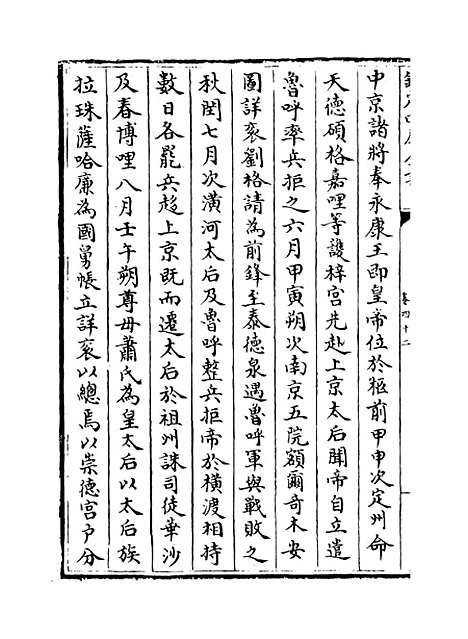 中京諸將奉永康王即皇帝位於柩前甲申次定州命
天德碩格嘉哩等護梓宮先赴上京太后聞帝自立遣
魯呼率兵拒之六月甲寅朔次南京五院額爾奇木安
圖詳衮劉格請為前鋒至泰德泉遇魯呼軍與戰敗之
秋閏七月次潢河太后及魯呼整兵拒帝於橫渡相持
數日各罷兵趍上京既而遷太后於祖州誅司徒華沙
及春博哩八月壬午朔尊母蕭氏為皇太后以太后族
拉珠薩哈廉為國舅帳立詳衮以總焉以崇德宮户分
卷四十二